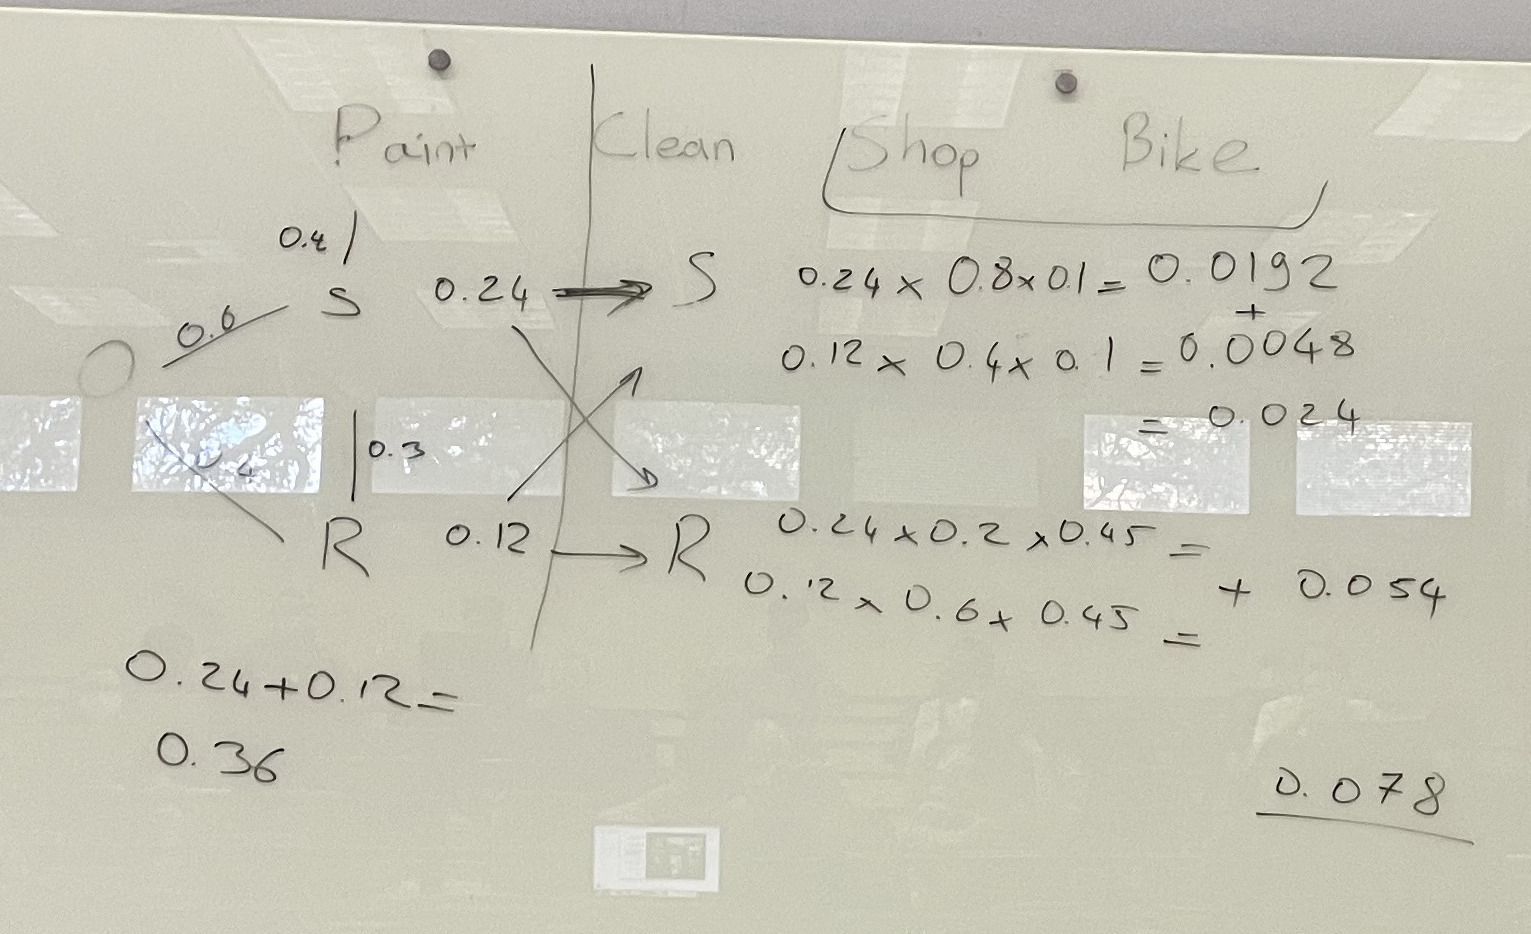 Paint Clean Shop Bike
0.4
S 0.24 S 0.24 × 0.8 × 0.1 = 0.0192
0.6 +
0.12 × 0.4 × 0.1 = 0.0048
= 0.024
0.3
R 0.12 R 0.24 × 0.2 × 0.45 =
+ 0.054
0.12 × 0.6 × 0.45 =
0.24 + 0.12 =
0.36
0.078